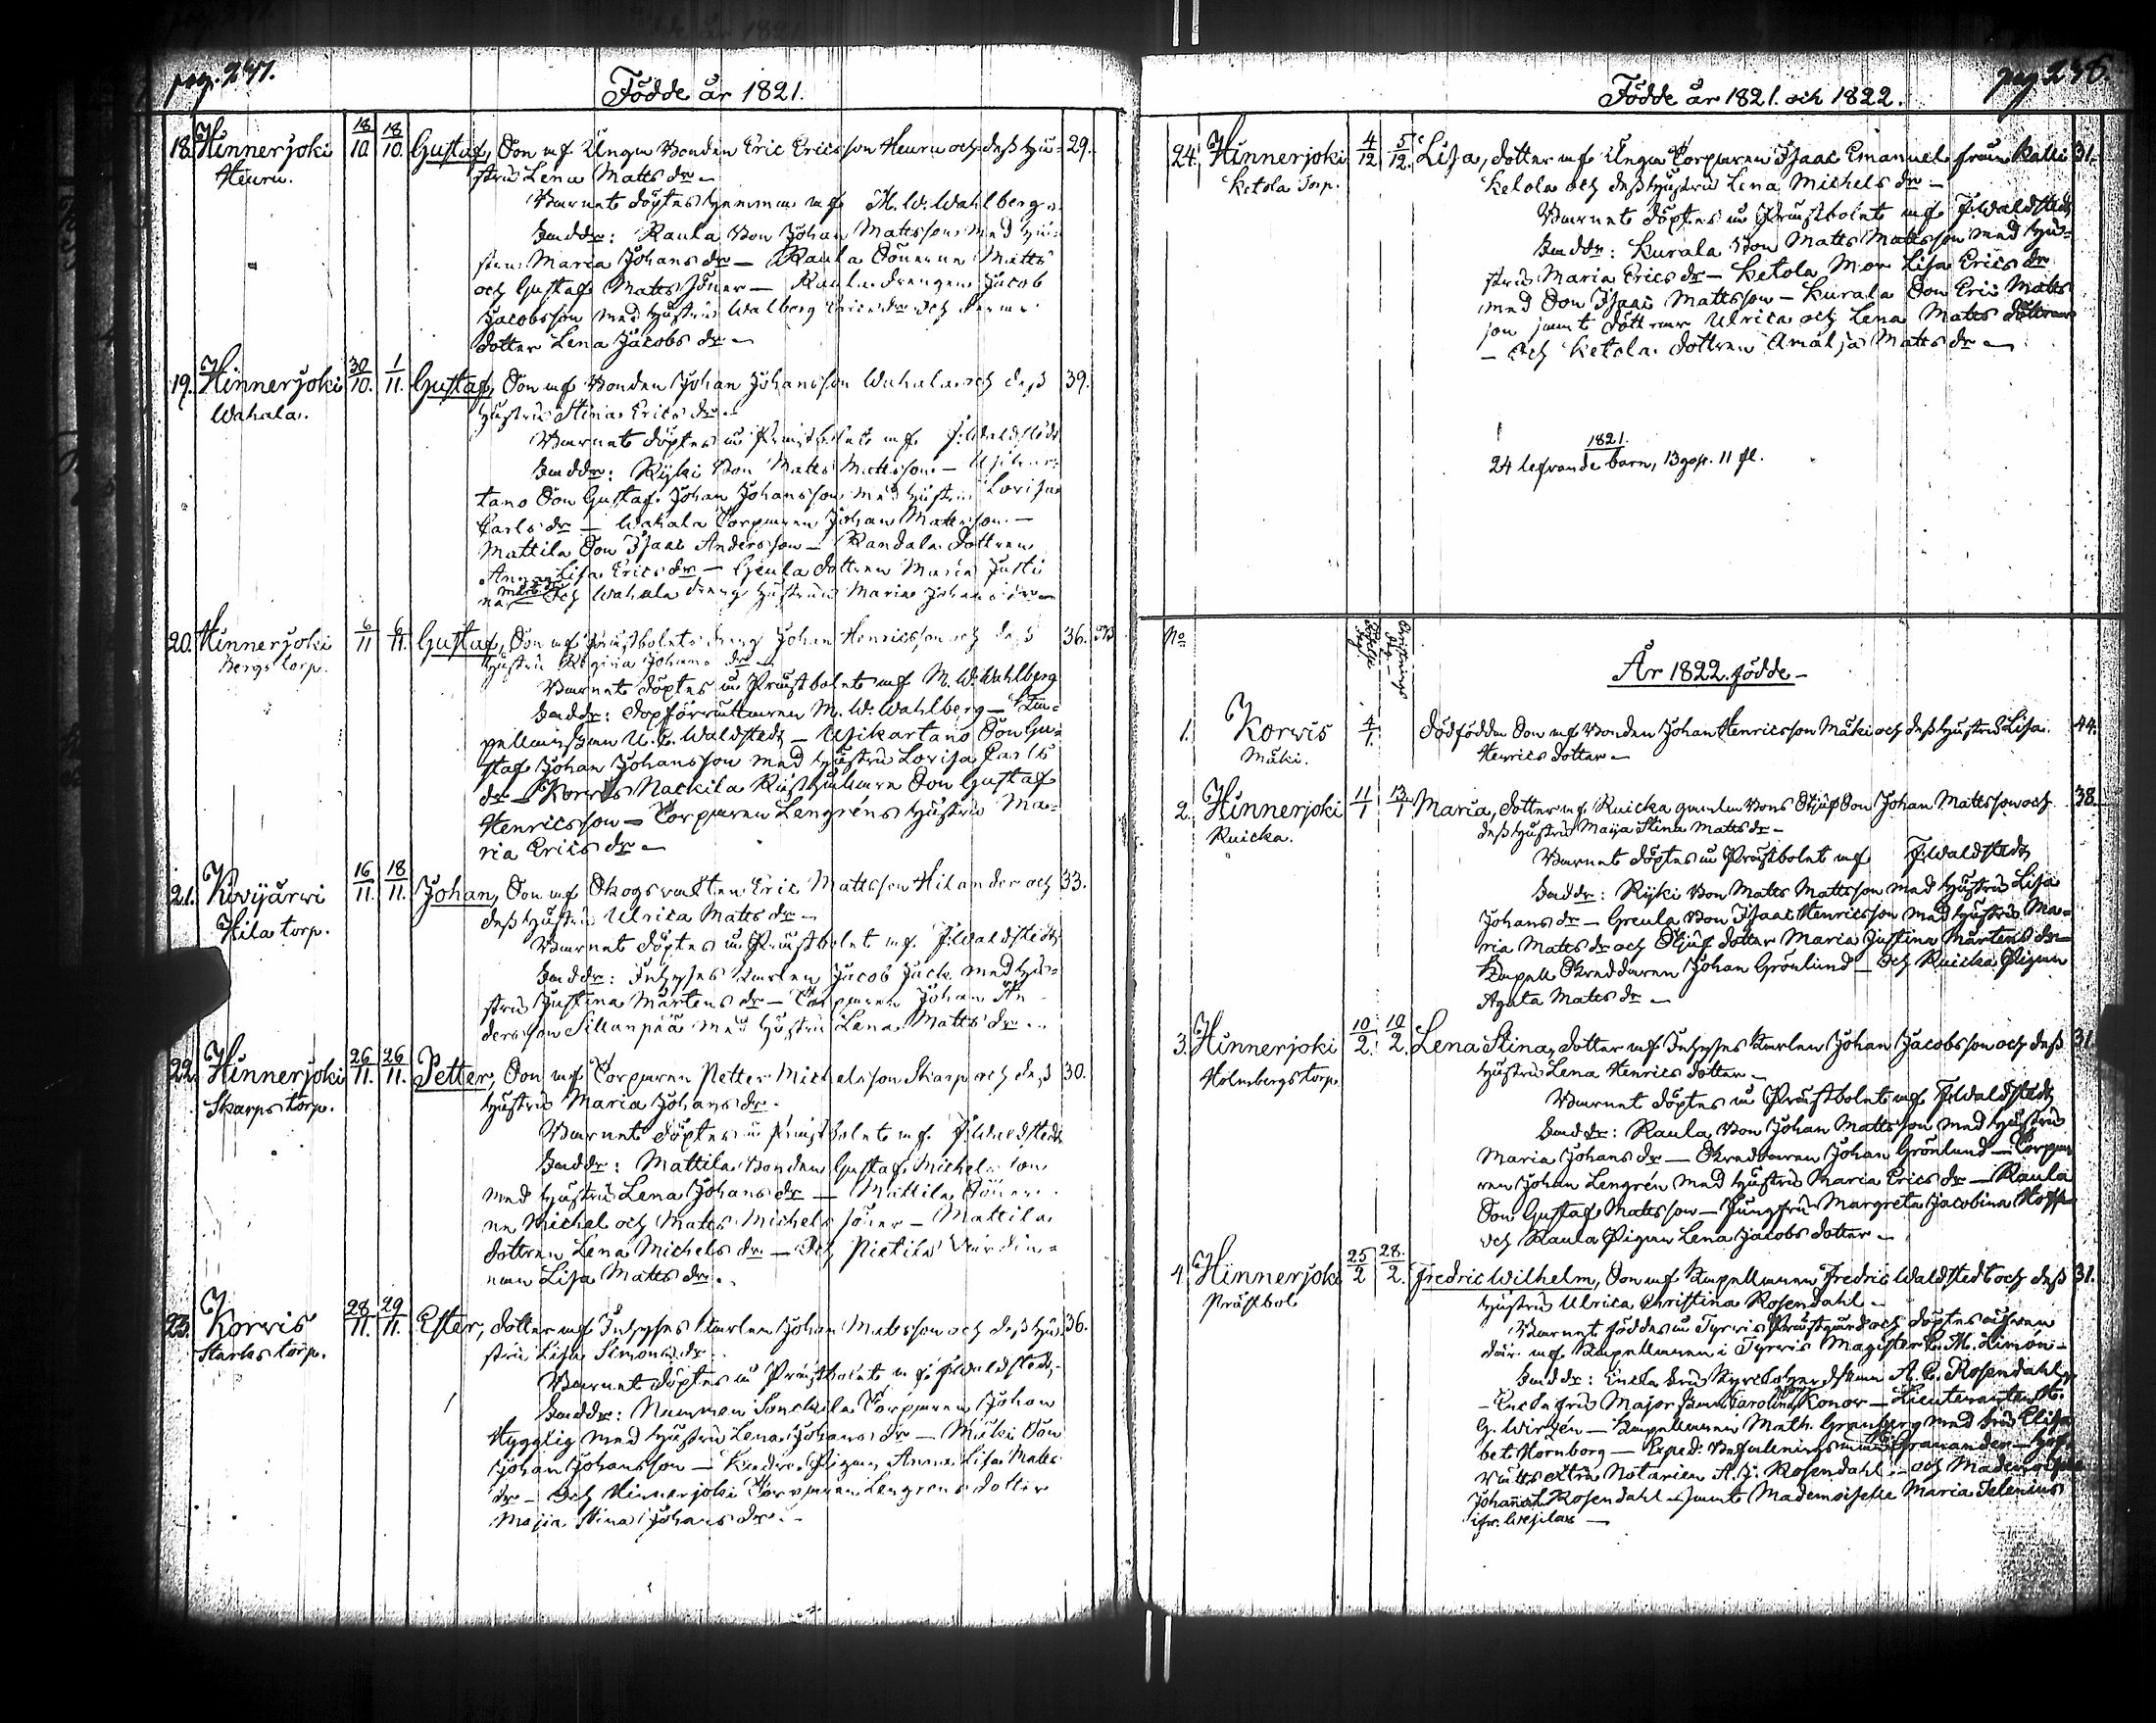 pag. 247.
Födde år 1821.
18. Hinnerjoki 18/10 18/10. Gustaf, Son af Unga Bonden Eric Ericsson Heuru och dess Hu- 29.
Heuru. stru Lena Matts dr –
Barnet döptes hemma af M. W. Wahlberg
Faddr: Raula Bon Johan Mattsson med Hu-
stru Maria Johans dr – Raula Sönerne Matts
och Gustaf Matts Söner – Raula drengen Jacob
Jacobsson med Hustru Walborg Erics dr och
dotter Lena Jacobs dr –
19. Hinnerjoki 30/10. 1/11. Gustaf, Son af Bonden Johan Johansson Wahala och dess 39.
Wahala. Hustru Stina Erics dr –
Barnet döptes i Prästbolet af F. Waldstedt
Faddr: Ryki Bon Matts Mattsson – Ujikar-
tano Son Gustaf Johan Johansson med Hustru Lovisa
Carls dr – Wahala Torparen Johan Mattsson –
Mattila Son Isaac Andersson – Randala dottren
Anna Lisa Erics dr – Greula dottren Maria Justi
na Mårts dr och Wahala dreng Hustrun Maria Johans dr –
20. Hinnerjoki 6/11 6/11. Gustaf, Son af Prästbolets dreng Johan Henricsson och dess 36.
Bergs torp. Hustru Regina Johans dr –
Barnet döptes i Prästbolet af M. W. Wahlberg
Faddr: dopförrättaren M. W. Wahlberg – Ka-
pellanskan U. C. Waldstedt – Ujikartano Son Gu-
staf Johan Johansson med Hustru Lovisa Carls
dr – Korwis Nackila Rusthållare Son Gustaf
Henricsson – Torparen Lengréns Hustru Ma-
ria Erics dr –
21. Kivijärwi 16/11. 18/11. Johan, Son af Skogsvakten Eric Mattsson Hilander och 33.
Hila torp. dess Hustru Ulrica Matts dr –
Barnet döptes i Prästbolet af F. Waldstedt
Faddr: Inhyses Karlen Jacob Jack med Hu-
stru Justina Mårtens dr – Torparen Johan An-
dersson Sillanpää med Hustru Lena Matts dr –
22. Hinnerjoki 26/11. 26/11. Petter, Son af Torparen Petter Michelsson Skarp och dess 30.
Skarps torp. Hustru Maria Johans dr –
Barnet döptes i Prästbolet af F. Waldstedt
Faddr: Mattila Bonden Gustaf Michelsson
med Hustru Lena Johans dr – Mattila Söner
ne Michel och Matts Michels Söner – Mattila
dottren Lena Michels dr – och Pietilä Värdin-
nan Lisa Matts dr –
23. Korwis 28/11. 29/11. Ester, dotter af Inhyses Karlen Johan Matsson och dess Hu- 36.
Starks torp. stru Lisa Simons dr –
Barnet döptes i Prästbolet af F. Waldstedt
Faddr: Nummen Torparen Johan
Hygglig med Hustru Lena Johans dr – Mäki Son
Johan Johansson – Pigan Anna Lisa Matts
dr – och Hinnerjoki Torparen Lengrens dotter
Majia Stina Johans dr –
pag 248.
Födde år 1821. och 1822.
24. Hinnerjoki 4/12 5/12. Lisa, dotter af Unga Torparen Isaac Emanuel från Kalli 31.
Ketola Torp. Ketola och dess Hustru Lena Michels dr –
Barnet döptes i Prästbolet af F. Waldstedt
Faddr: Kurala Bon Matts Mattsson med Hu-
stru Maria Erics dr – Ketola Mor Lisa Erics dr
med Son Isaac Mattsson – Kurala Son Eric Matts
son samt döttrar Ulrica och Lena Matts döttrar
– och Ketola dottren Amalja Matts dr –
1821.
24 lefvande barn, 13 gop. 11 fl.
No
År 1822. födde –
1. Korwis 4/1. Dödfödden Son af Bonden Johan Henricsson Mäki och dess Hustru Lisa 44.
Mäki. Henrics dotter –
2. Hinnerjoki 11/1 13/1 Maria, dotter af Ruicka gamla Bons Stjuf Son Johan Mattsson och 38
Ruicka. dess Hustru Maija Stina Matts dr –
Barnet döptes i Prästbolet af F. Waldstedt
Faddr: Ryki Bon Matts Mattsson med Hustru Lisa
Johans dr – Greula Bon Isaac Henricsson med Hustru Ma-
ria Matts dr och Stjuf dotter Maria Justina Mårtens dr –
Kapell Skreddaren Johan Grönlund – och Ruicka Pigan
Agata Matts dr –
3. Hinnerjoki 10/2. 10/2. Lena Stina, dotter af Inhyses Karlen Johan Jacobsson och dess 31
Holmbergs torp. Hustru Lena Henrics dotter –
Barnet döptes i Prästbolet af F. Waldstedt
Faddr: Raula Bon Johan Mattsson med Hustru
Maria Johans dr – Skreddaren Johan Grönlund – Torpa
ren Johan Lengrén med Hustru Maria Erics dr – Raula
Son Gustaf Mattsson – Jungfru Margreta Jacobina Hoff
och Raula Pigan Lena Jacobs dotter –
4. Hinnerjoki 25/2 28/2. Fredric Wilhelm, Son af Kapellanen Fredric Waldstedt och dess 31.
Prästbol Hustru Ulrica Christina Rosendahl –
Barnet föddes i Tyrwis Prästgård och döptes äfven
där af Kapellanen i Tyrwis Magister C. M. Limón –
Faddr: Enka Fru Kyrckoherdskan A. C. Rosendahl
– Enkefru Majorskan Carolina von Konow – Lieutenanten H.
G. Wirzén – Kapellanen Math. Granberg med Fru Elisa
bet Hornborg – Exped: Befallningsman Granander – Hof
rätts extra Notarien A. J. Rosendahl – och Mademoiselle
Johanna Rosendahl samt Mademoiselle Maria Delenius